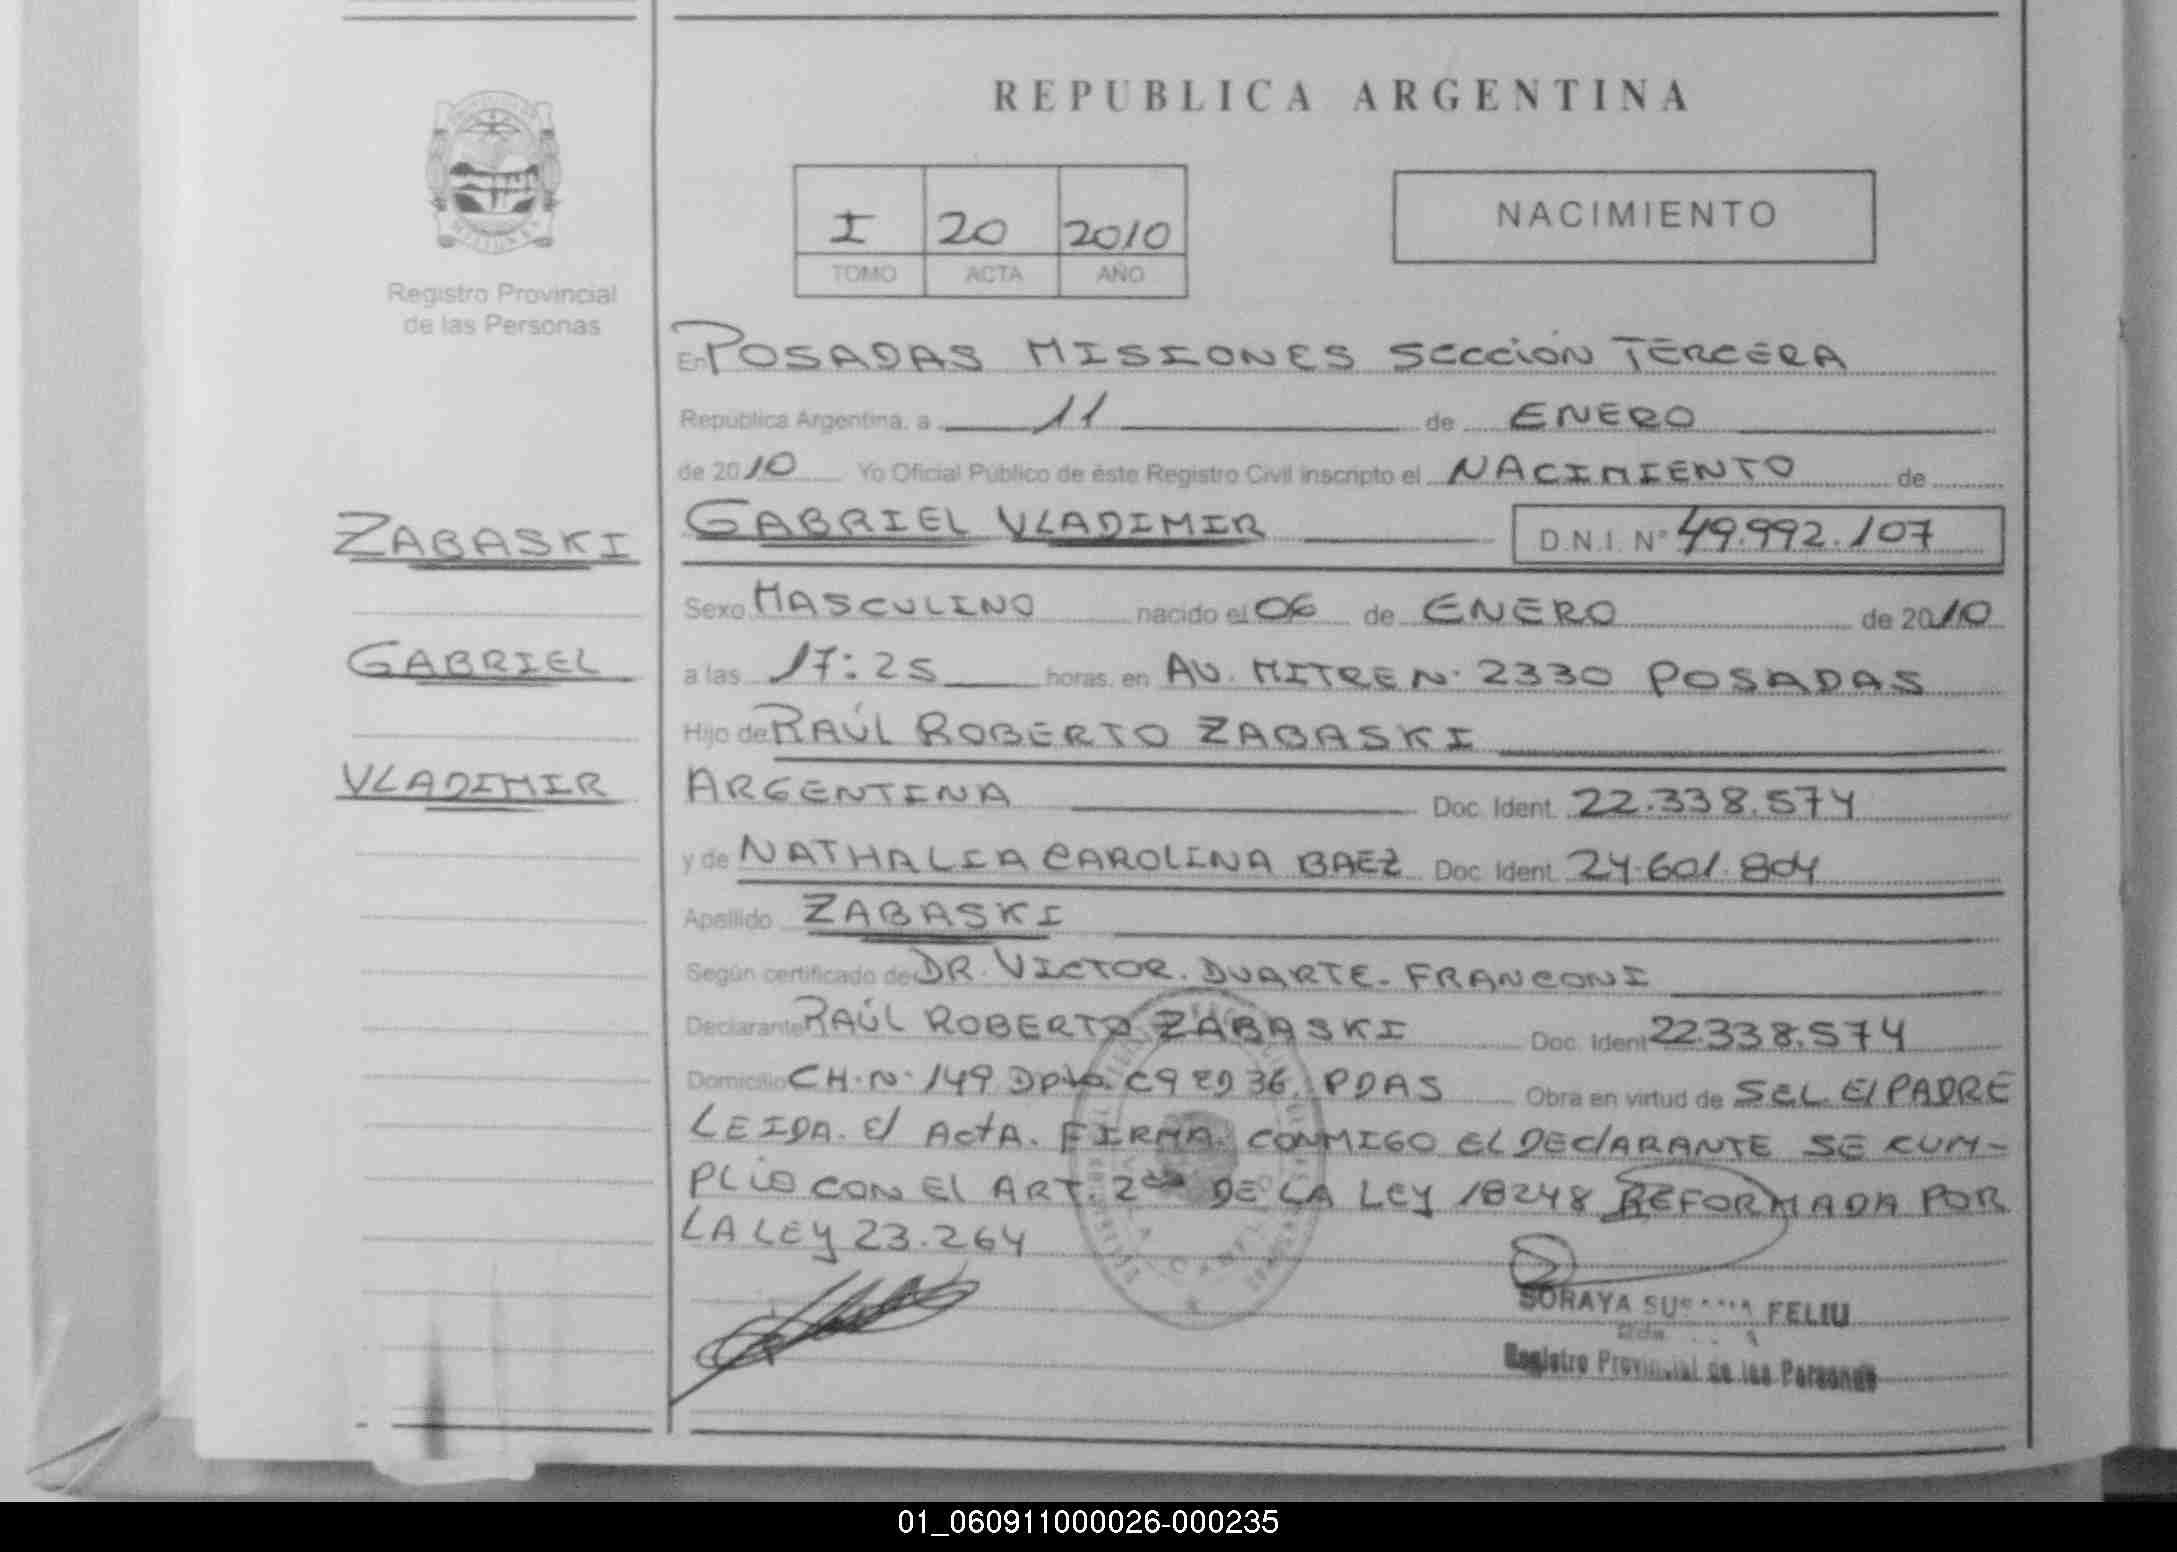 REPUBLICA ARGENTINA
I 20 2010
TOMO ACTA AÑO
NACIMIENTO
Registro Provincial
de las Personas
ZABASKI
GABRIEL
VLADIMIR
En POSADAS MISIONES SECCIÓN TERCERA
República Argentina, a 11 de ENERO
de 2010 Yo Oficial Público de éste Registro Civil inscripto el NACIMIENTO de
GABRIEL VLADIMIR D.N.I. Nº 49.992.107
Sexo MASCULINO nacido el 06 de ENERO de 2010
a las 17:25 horas, en AV. MITRE N· 2330 POSADAS
Hijo de RAÚL ROBERTO ZABASKI
ARGENTINA Doc. Ident. 22.338.574
y de NATHALIA CAROLINA BAEZ Doc. Ident. 24.601.804
Apellido ZABASKI
Según certificado de DR. VICTOR. DUARTE. FRANCONI
Declarante RAÚL ROBERTO ZABASKI Doc. Ident 22.338.574
Domicilio CH. N· 149 Dpto. C9 ED 36. PDAS Obra en virtud de SEL El PADRE
LEIDA. El ActA. FIRMA. CONMIGO EL DEClARANTE SE CUM-
PLIÓ CON El ART. 2do DE LA LEY 18248 REFORMADA POR
LA LEY 23.264
SORAYA FELIU
Registro Provincial de las Personas
01_060911000026-000235